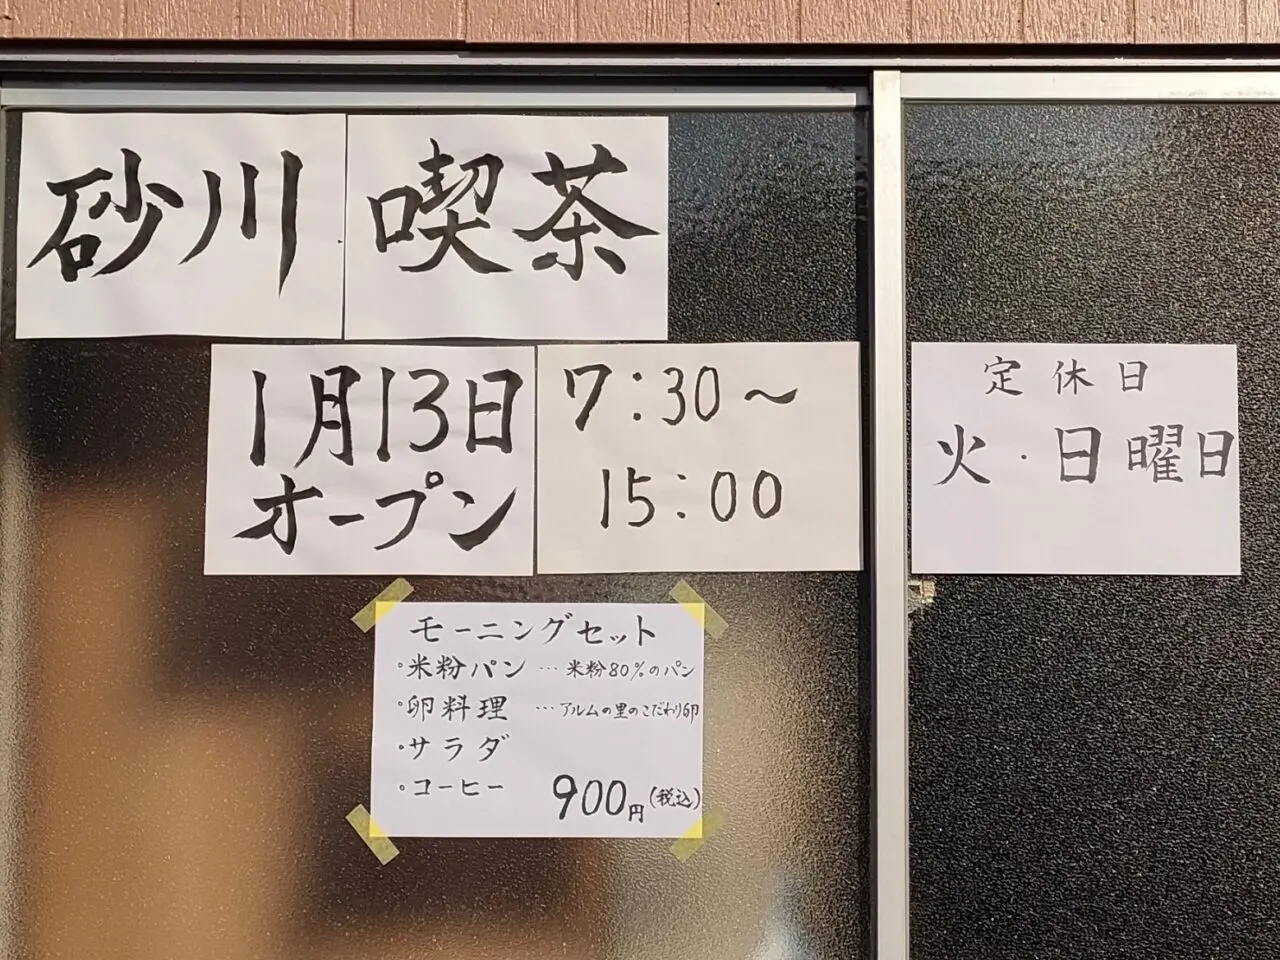 砂川 喫茶
1月13日
オープン
7:30〜
15:00
定休日
火・日曜日
モーニングセット
・米粉パン …米粉80%のパン
・卵料理 …アルムの里のこだわり卵
・サラダ
・コーヒー 900円(税込)